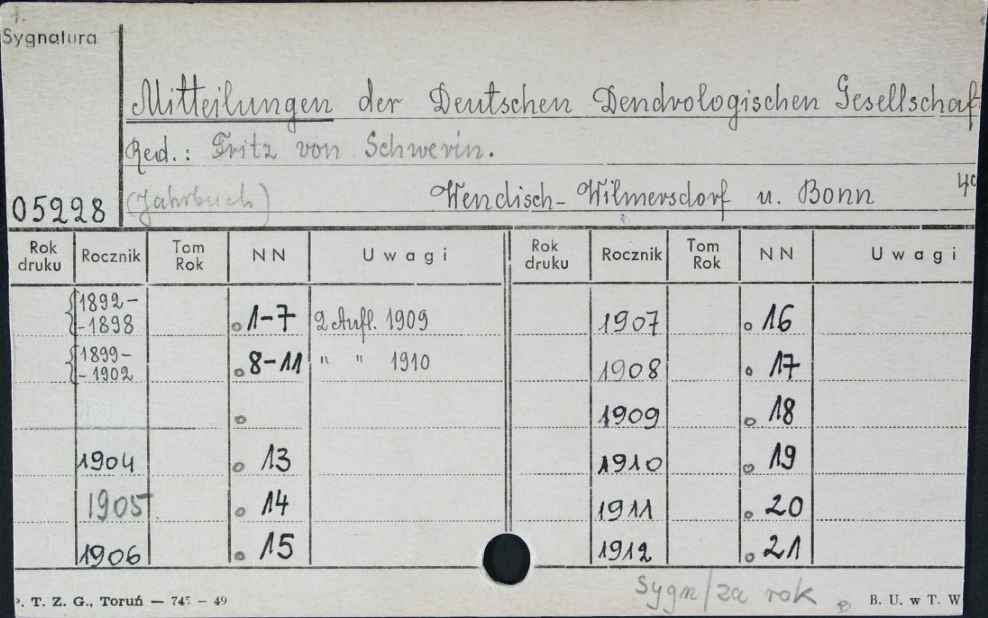 Sygnatura
Mitteilungen der Deutschen Dendrologischen Gesellschaf
Red.: Fritz von Schwerin.
05228 (Jahrbuch) Wendisch-Wilmersdorf u. Bonn 4°
Rok druku Rocznik Tom Rok NN Uwagi Rok druku Rocznik Tom Rok NN Uwagi
{1892-
-1898 1-7 2 Aufl. 1909 1907 16
{1899-
-1902 8-11 " " 1910 1908 17
1909 18
1904 13 1910 19
1905 14 1911 20
1906 15 1912 21
Sygn/za rok
. T. Z. G., Toruń — 745 — 49 B. U. w T. W